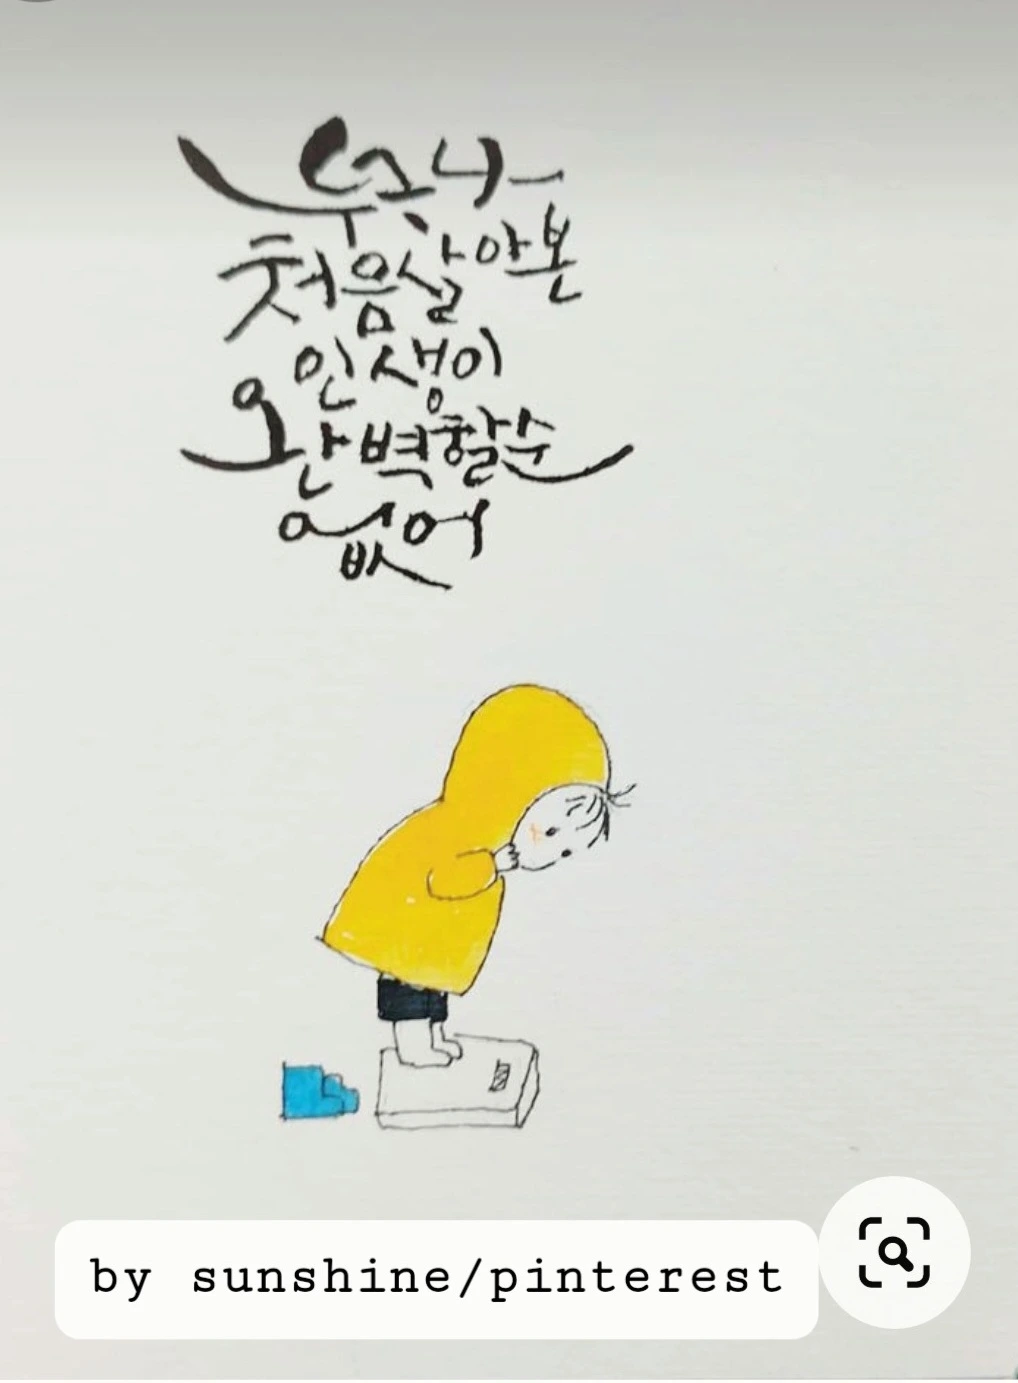 누구나
처음 살아본
인생이
완벽할 수
없어
by sunshine/pinterest